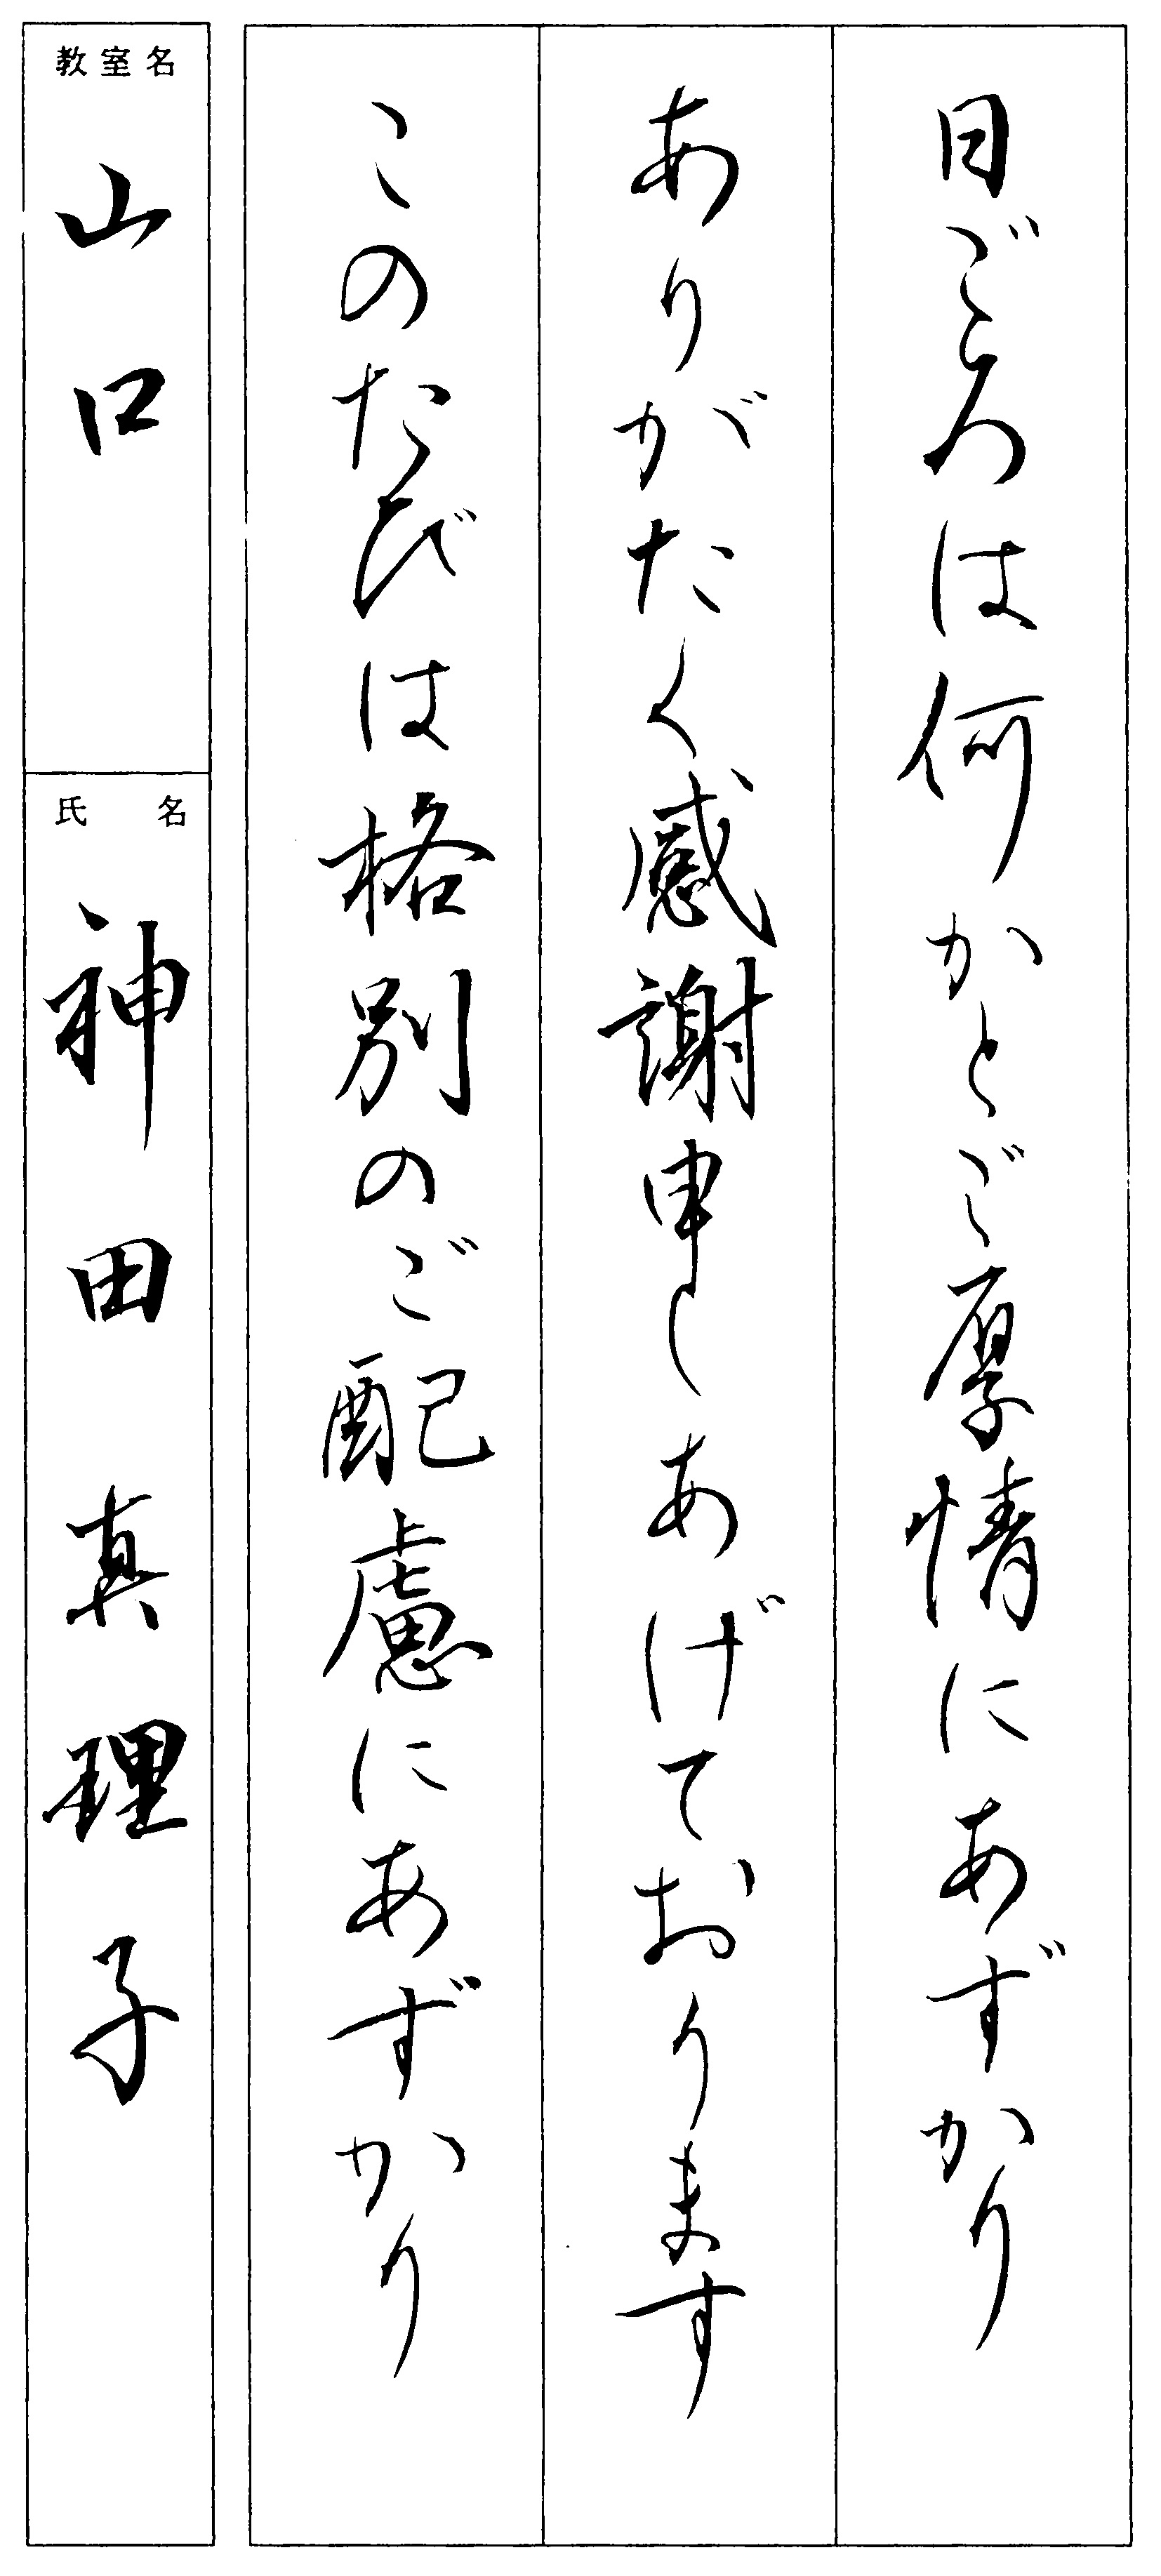 日ごろは何かとご厚情にあずかり
ありがたく感謝申しあげております
このたびは格別のご配慮にあずかり
教室名
山口
氏名
神田真理子